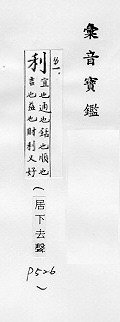 彙音寶鑑
利
宜也通也銛也順也
吉也益也財利又好
(居下去聲
P526
)